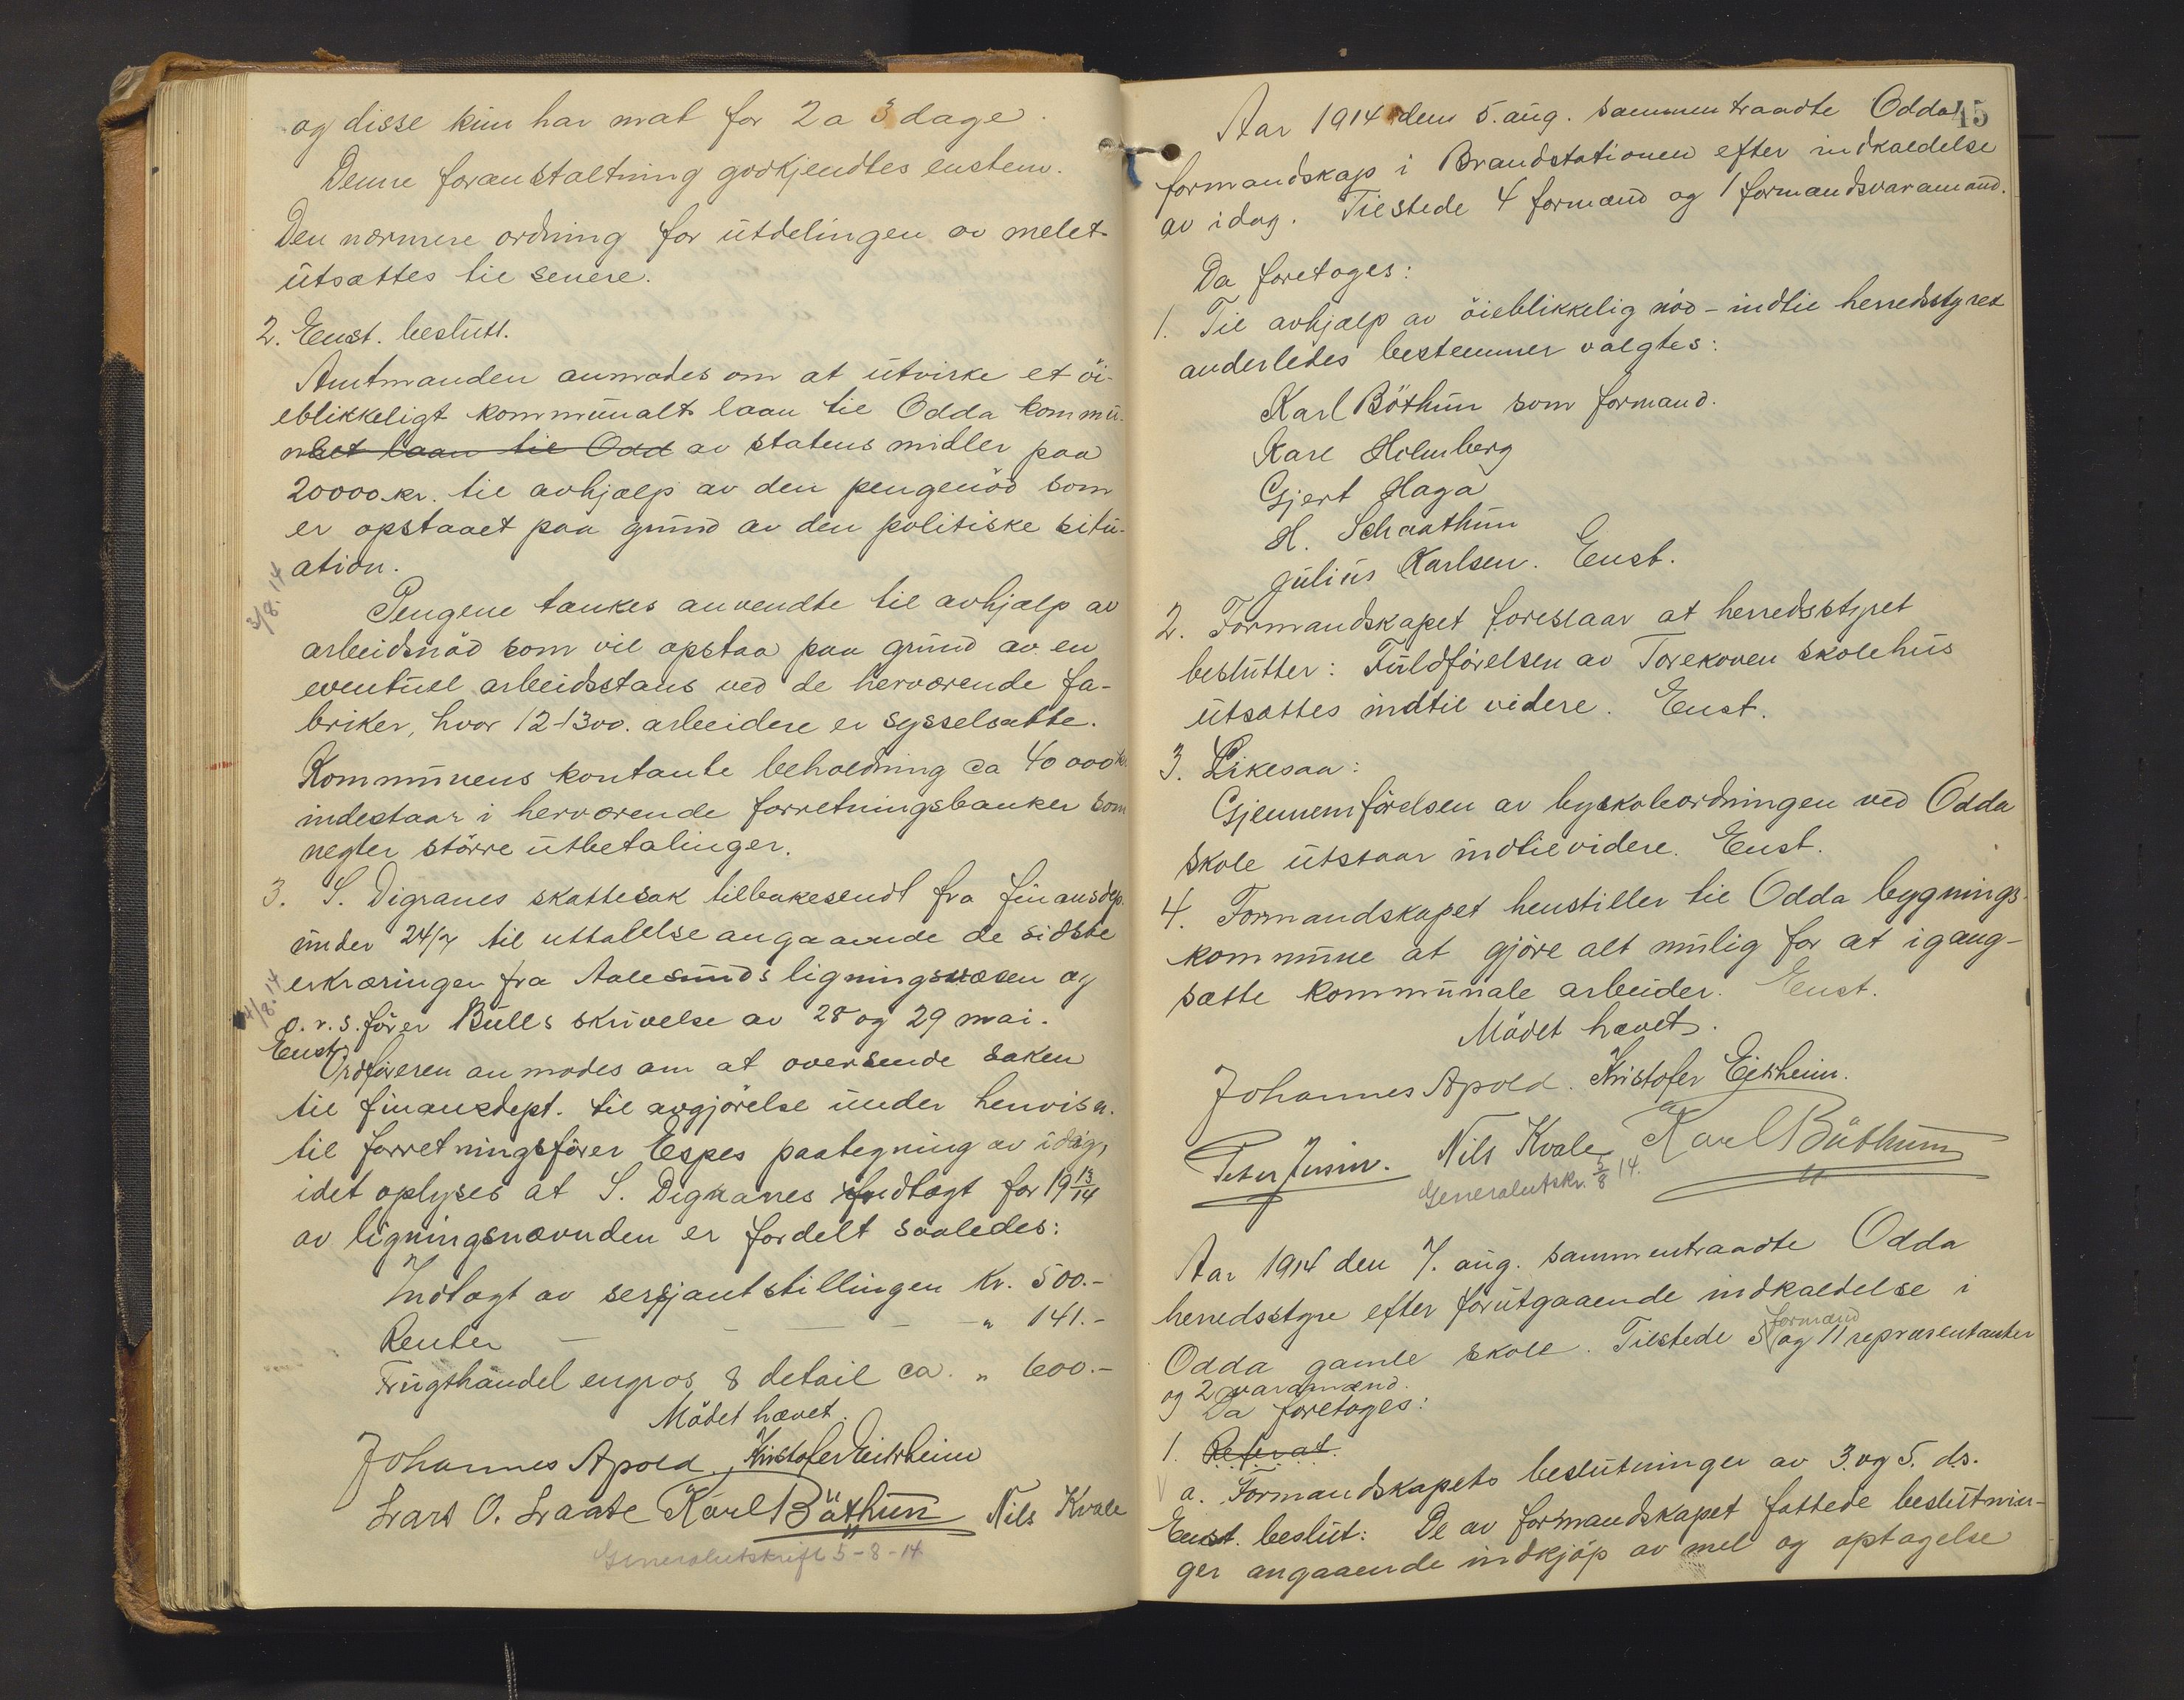 og disse kun har mat for 2 a 3 dage.
Denne foranstaltning godkjendtes enstem.
Den nærmere ordning for utdelingen av melet
utsattes til senere.
2. Enst. beslutt.
Amtmanden anmodes om at utvirke et öi-
eblikkeligt kommunalt laan til Odda kommu-
net laan til Odd av statens midler paa
20000 kr. til avhjælp av den pengenöd som
er opstaaet paa grund av den politiske situ-
ation.
3/8.14
Pengene tænkes anvendte til avhjælp av
arbeidsnöd som vil opstaa paa grund av en
eventuel arbeidsstans ved de herværende fa-
briker, hvor 12-1300. arbeidere er sysselsatte.
Kommunens kontante beholdning ca 40 000 kr.
indestaar i herværende forretningsbanker som
negter större utbetalinger.
3. S. Digranes skattesak tilbakesendt fra finansdep.
under 24/7 til uttalelse angaaende de sidste
erkræringer fra Aalesunds ligningsvæsen og
4/8.14
o.r.s. förer Bulls skrivelse av 28 og 29 mai.
Enst.
Ordföreren anmodes om at oversende saken
til finansdept. til avgjörelse under henvisn.
til forretningsförer Espes paategning av idag,
idet oplyses at S. Digranes indtægt for 19 13/14
av ligningsnævnden er fordelt saaledes:
Indtægt av sersjantstillingen Kr. 500.-
Renter — — — — " 141.-
Frugthandel engros & detail ca. " 600.-
Mödet hævet.
Johannes Apold. Kristofer Eitrheim
Lars O. Laate Karl Böthun Nils Kvale
Generalutskrift 5-8-14
45
Aar 1914 den 5. aug. sammentraadte Odda
formandskap i Brandstationen efter indkaldelse
av idag. Tilstede 4 formænd og 1 formandsvaramand.
Da foretoges:
1. Til avhjælp av öieblikkelig nöd - indtil herredsstyret
anderledes bestemmer valgtes:
Karl Böthun som formand.
Karl Holmberg
Gjert Haga
H. Schaathun
Julius Karlsen. Enst.
2. Formandskapet foreslaar at herredsstyret
beslutter: Fuldförelsen av Tokheim skolehus
utsattes indtil videre. Enst.
3. Likesaa:
Gjennemförelsen av byskoleordningen ved Odda
skole utstaar indtil videre. Enst.
4. Formandskapet henstiller til Odda bygnings-
kommune at gjöre alt mulig for at igang-
sætte kommunale arbeider. Enst.
Mödet hævet.
Johannes Apold. Kristofer Eitrheim.
Peter Jensen. Nils Kvale Karl Böthun
Generalutskr. 5/8 14.
Aar 1914 den 7. aug. sammentraadte Odda
herredsstyre efter forutgaaende indkaldelse i
formænd
Odda gamle skole. Tilstede 5 og 11 repræsentanter
og 2 varamænd.
Da foretoges:
1. Referat.
a. Formandskapets beslutninger av 3. og 5. ds.
Enst. beslut: De av formandskapet fattede beslutnin-
ger angaaende indkjöp av mel og optagelse